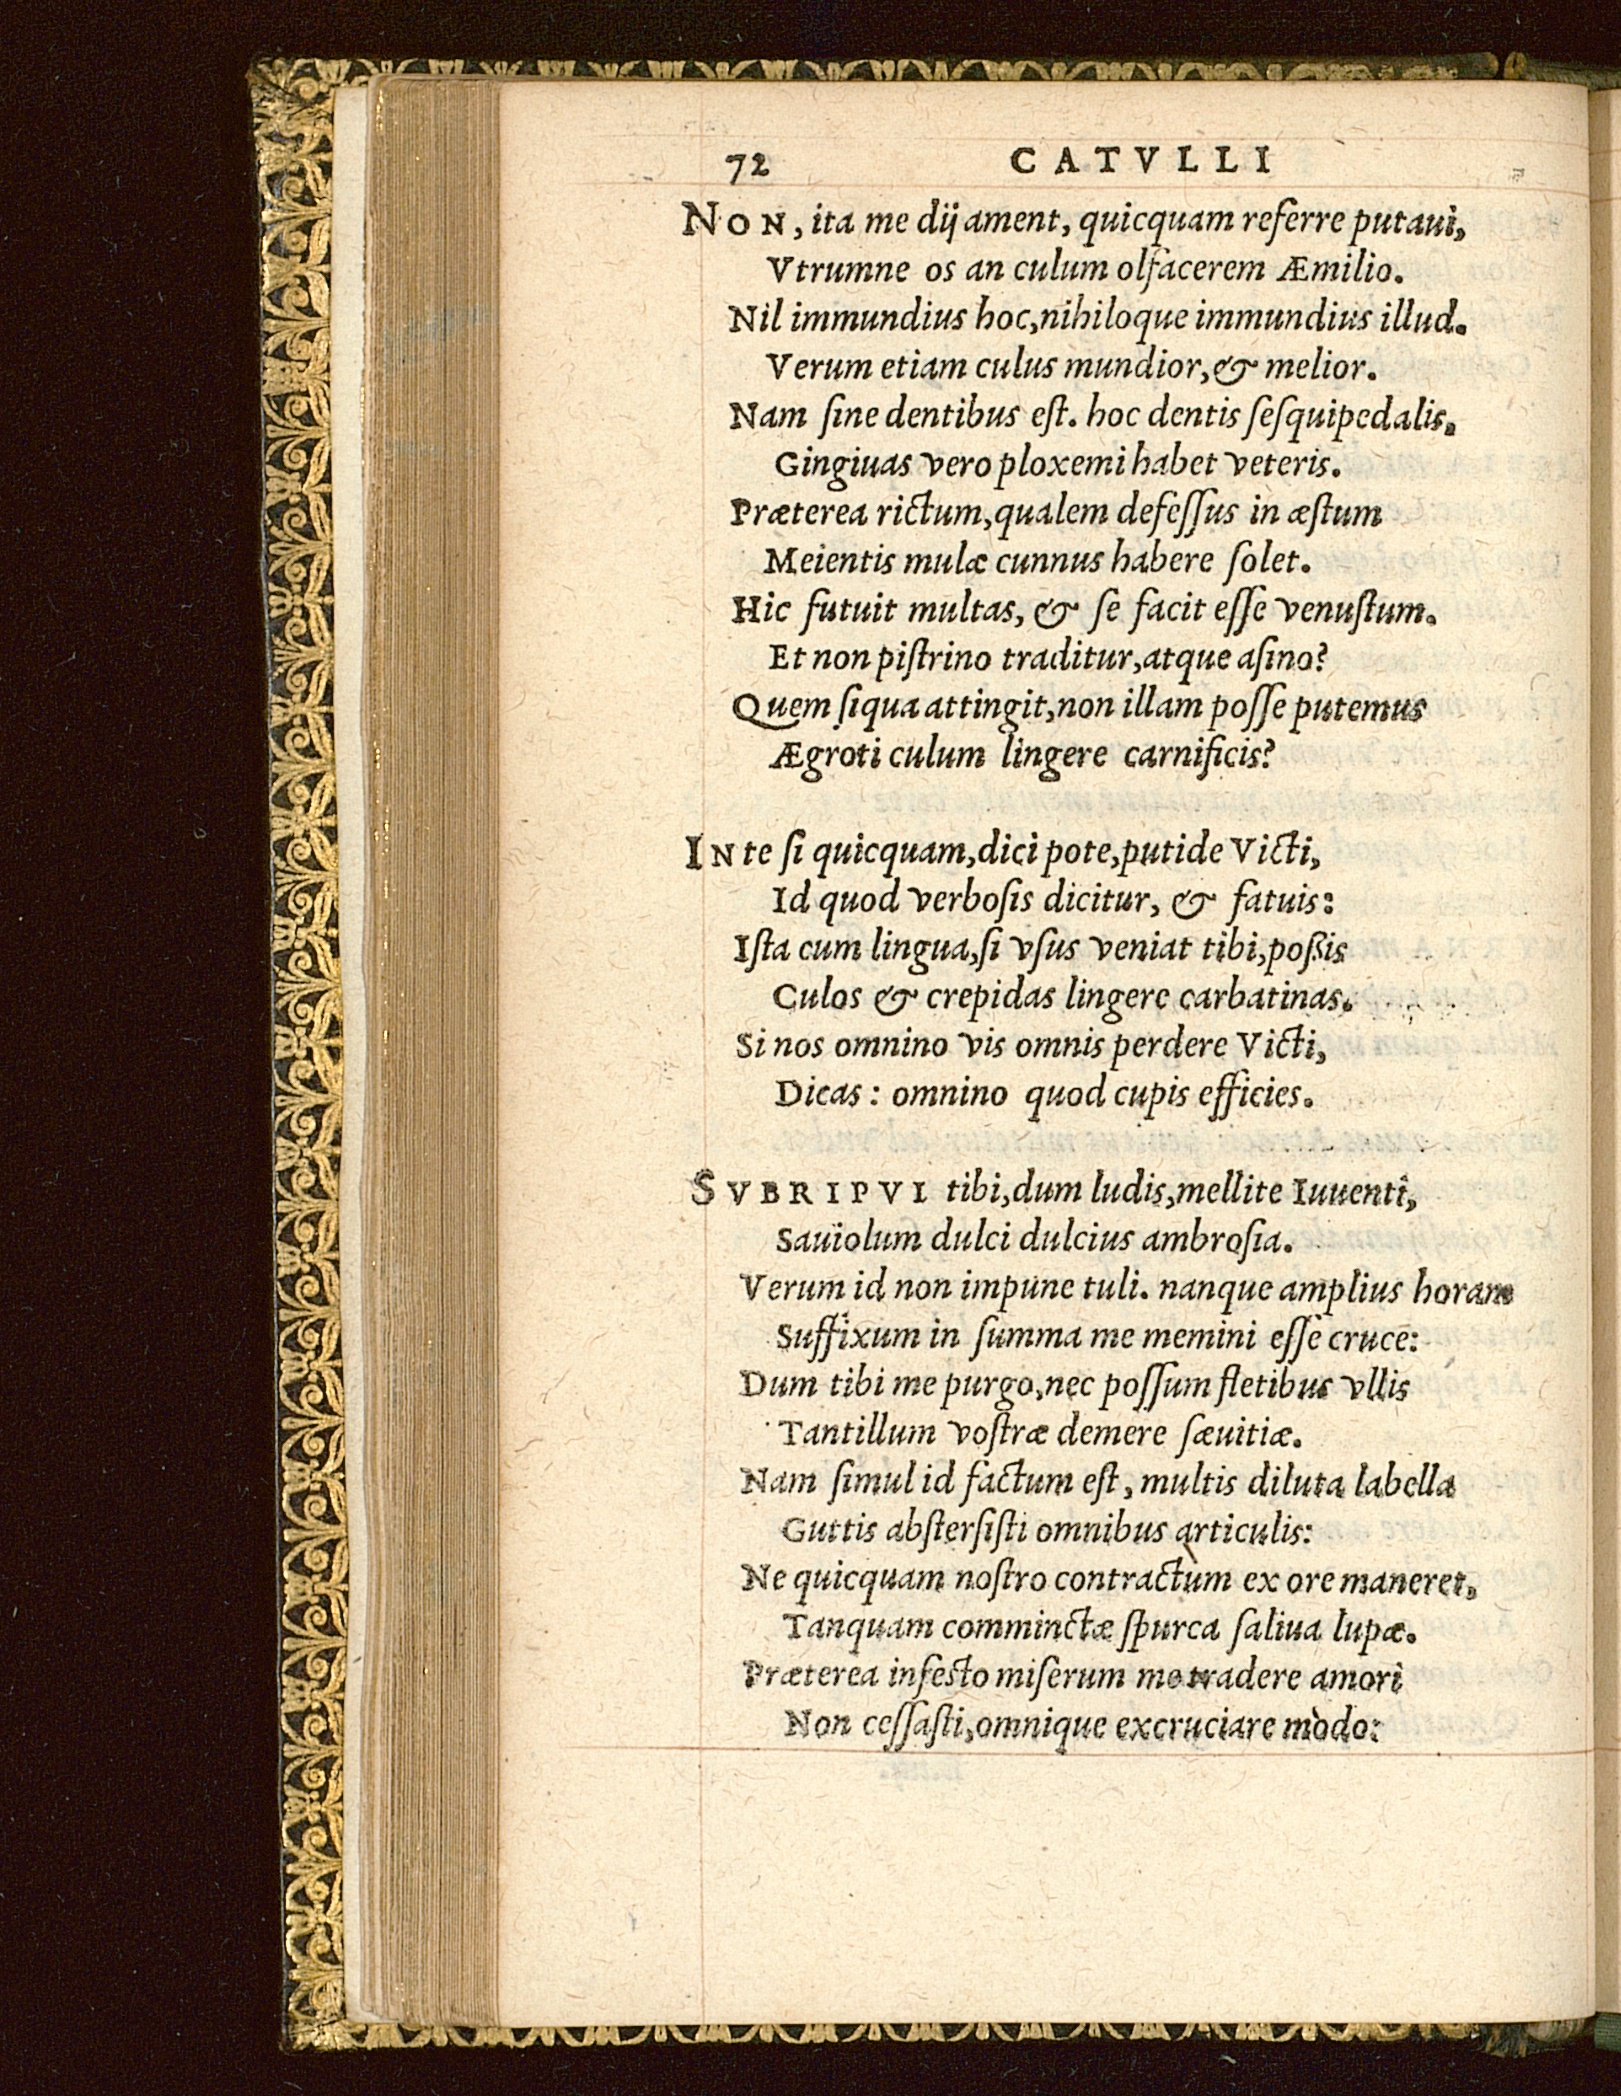 72 CATVLLI
NON, ita me dij ament, quicquam referre putaui,
Vtrumne os an culum olfacerem Æmilio.
Nil immundius hoc,nihiloque immundius illud.
Verum etiam culus mundior,& melior.
Nam ſine dentibus eſt. hoc dentis ſeſquipedalis.
Gingiuas vero ploxemi habet veteris.
Præterea rictum,qualem defeſſus in æſtum
Meientis mulæ cunnus habere ſolet.
Hic futuit multas, & ſe facit eſſe venuſtum.
Et non piſtrino traditur,atque aſino?
Quem ſiqua attingit,non illam poſſe putemus
Ægroti culum lingere carnificis?
IN te ſi quicquam,dici pote,putide Victi,
Id quod verboſis dicitur, & fatuis:
Iſta cum lingua,ſi vſus veniat tibi,poßis
Culos & crepidas lingere carbatinas.
Si nos omnino vis omnis perdere Victi,
Dicas: omnino quod cupis efficies.
SVBRIPVI tibi,dum ludis,mellite Iuuenti,
Sauiolum dulci dulcius ambroſia.
Verum id non impune tuli. nanque amplius horam
Suffixum in ſumma me memini eſſe cruce:
Dum tibi me purgo,nec poſſum fletibus vllis
Tantillum voſtræ demere ſæuitiæ.
Nam ſimul id factum eſt, multis diluta labella
Guttis abſterſiſti omnibus articulis:
Ne quicquam noſtro contractum ex ore maneret,
Tanquam comminctæ ſpurca ſaliua lupæ.
Præterea infecto miſerum me tradere amori
Non ceſſaſti,omnique excruciare modo: